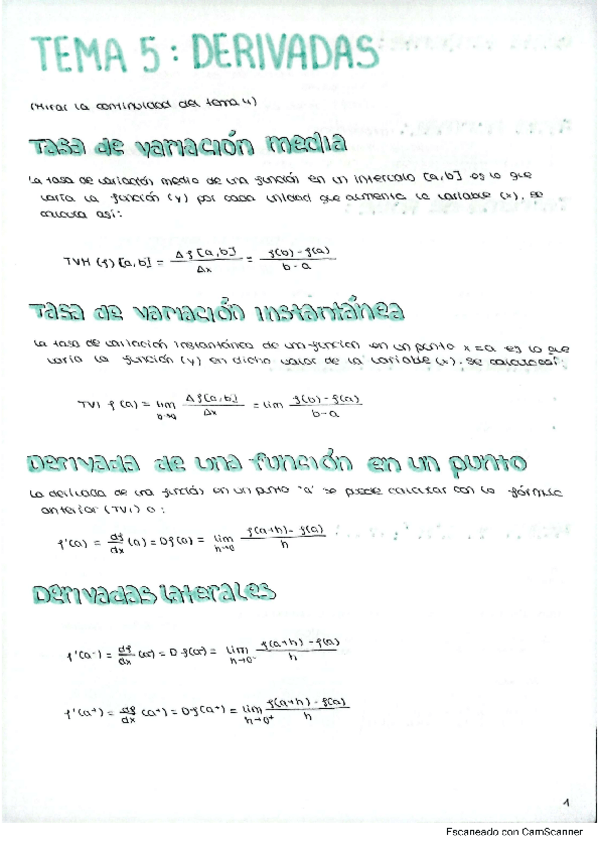 TEMA 5: DERIVADAS
(Mirar la continuidad del tema 4)
Tasa de variación media
La tasa de variación media de una función en un intervalo [a,b] es lo que
varía la función (y) por cada unidad que aumenta la variable (x). se
calcula así:
TVM (f) [a,b] = Δf[a,b] / Δx = f(b)-f(a) / b-a
Tasa de variación instantánea
La tasa de variación instantánea de una función en un punto x=a es lo que
varía la función (y) en dicho valor de la variable (x). se calcula así:
TVI f(a) = lim b→a Δf[a,b] / Δx = lim f(b)-f(a) / b-a
Derivada de una función en un punto
La derivada de una función en un punto "a" se puede calcular con la fórmula
anterior (TVI) o:
f'(a) = df/dx (a) = Df(a) = lim h→0 f(a+h)-f(a) / h
Derivadas laterales
f'(a⁻) = df/dx (a⁻) = Df(a⁻) = lim h→0⁻ f(a+h)-f(a) / h
f'(a⁺) = df/dx (a⁺) = Df(a⁺) = lim h→0⁺ f(a+h)-f(a) / h
1
Escaneado con CamScanner